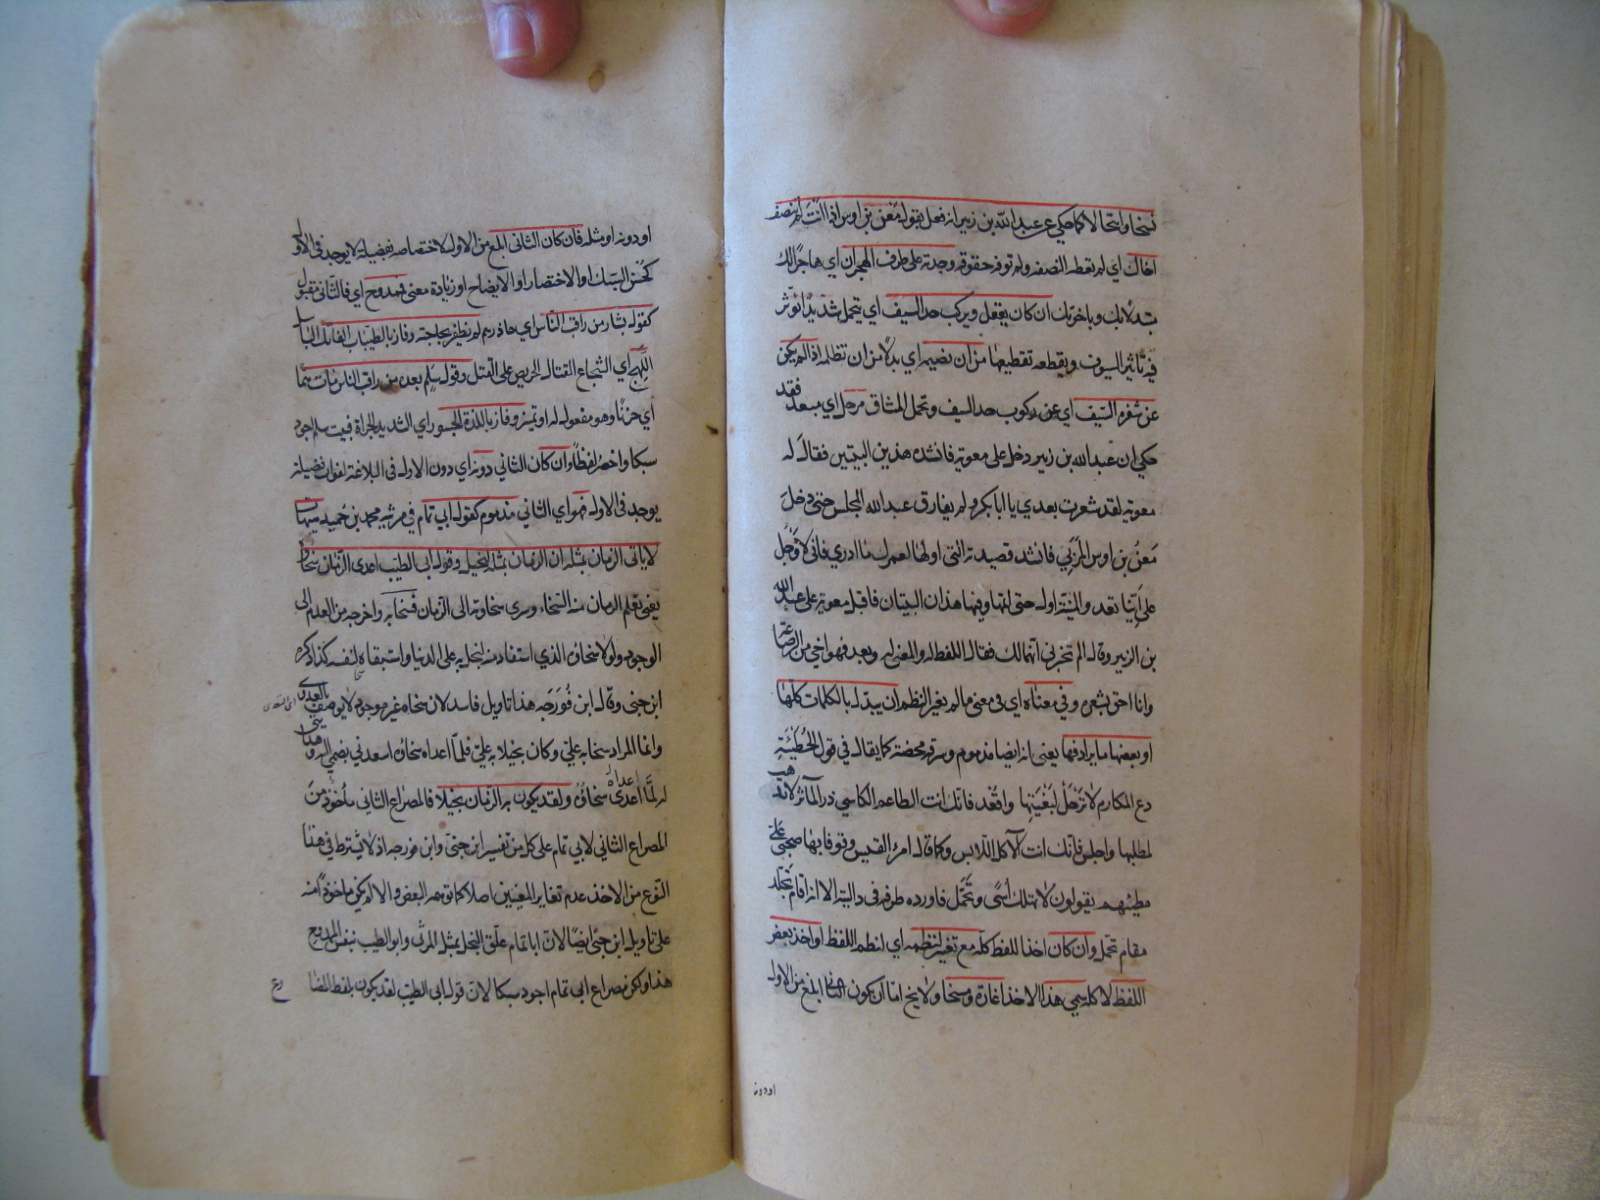 نسخا وانتحالا كما حكي عن عبد الله بن زبير انه فعل بقول معن بن اوس اذا انت لم تنصف
اخاك اي لم تعطه النصفة ولم توفه حقوقه وجدته على طرف الهجران اي هاجرا لك
متبدلا بك وباخوتك ان كان يعقل ويركب حد السيف اي يتحمل شدائد تؤثر
فيه تاثير السيوف وتقطعه تقطيعها من ان تضيمه اي بدلا من ان تظلمه اذا لم يكن
عن شفرة السيف اي عن ركوب حد السيف وتحمل المشاق مزحل اي مبعد فقد
حكي ان عبد الله بن زبير دخل على معوية فانشده هذين البيتين فقال له
معوية لقد شعرت بعدي يا ابا بكر ولم يفارق عبد الله المجلس حتى دخل
معن بن اوس المزني فانشد قصيدته التي اولها لعمرك ما ادري واني لاوجل
على اينا تعدو المنية اول حتى اتمها وفيها هذان البيتان فاقبل معوية على عبد الله
بن الزبير وقال الم تخبرني انهما لك فقال اللفظ له والمعنى لي وبعد فهو اخي من الرضاعة
وانا احق بشعره وفي معناه اي في معنى ما لم يغير النظم ان يبدل بالكلمات كلها
او بعضها ما يرادفها يعني انه ايضا مذموم وسرقة محضة كما يقال في قول الحطيئة
دع المكارم لا ترحل لبغيتها واقعد فانك انت الطاعم الكاسي ذر المآثر لا تذهب
لمطلبها واجلس فانك انت الآكل اللابس وكما قال امرء القيس وقوفا بها صحبي علي
مطيهم يقولون لا تهلك اسى وتحمل فاورده طرفة في داليته الا انه اقام تجلد
مقام تحمل وان كان اخذ اللفظ كله مع تغيير لنظمه اي لنظم اللفظ او اخذ بعض
اللفظ لا كله سمي هذا الاخذ اغارة ومسخا ولا يخ اما ان يكون الثاني ابلغ من الاول
او دونه
او دونه او مثله فان كان الثاني ابلغ من الاول لاختصاصه بفضيلة لا يوجد في الاول
كحسن السبك او الاختصار او الايضاح او زيادة معنى فممدوح اي فالثاني مقبول
كقول بشار من راقب الناس اي حاذرهم لم يظفر بحاجته وفاز بالطيبات الفاتك
اللهج اي الشجاع القتال الحريص على القتل وقول سلم بعده من راقب الناس مات هما
اي حزنا وهو مفعول له او تمييز وفاز باللذة الجسور اي الشديد الجراة فبيت سلم اجود
سبكا واخصر لفظا وان كان الثاني دونه اي دون الاول في البلاغة لفوات فضيلة
يوجد في الاول فهو اي الثاني مذموم كقول ابي تمام في مرثية محمد بن حميد هيهات
لا ياتي الزمان بمثله ان الزمان بمثله لبخيل وقول ابي الطيب اعدى الزمان سخاؤه
يعني تعلم الزمان منه السخاء وسرى سخاوته الى الزمان فسخا به واخرجه من العدم الى
الوجود ولولا سخاؤه الذي استفاد منه لبخل به على الدنيا واستبقاه لنفسه كذا ذكره
ابن جني وقال ابن فورجه هذا تاويل فاسد لان سخاه غير موجود لا يوصف بالعدوى
وانما المراد سخا به علي وكان بخيلا به علي فلما اعداه سخاؤه اسعدني بضمي اليه وهدايتي
له لما اعدى سخاؤه ولقد يكون به الزمان بخيلا فالمصراع الثاني ماخوذ من
المصراع الثاني لابي تمام على كل من تفسير ابن جني وابن فورجه اذ لا يشترط في هذا
النوع من الاخذ عدم تغاير المعنيين اصلا كما توهمه البعض والا لم يكن ماخوذا منه
على تاويل ابن جني ايضا لان ابا تمام علق البخل بمثل المرثي وابو الطيب بنفس الممدوح
هذا ولكن مصراع ابي تمام اجود سبكا لان قول ابي الطيب لقد يكون بلفظ المضا
رع